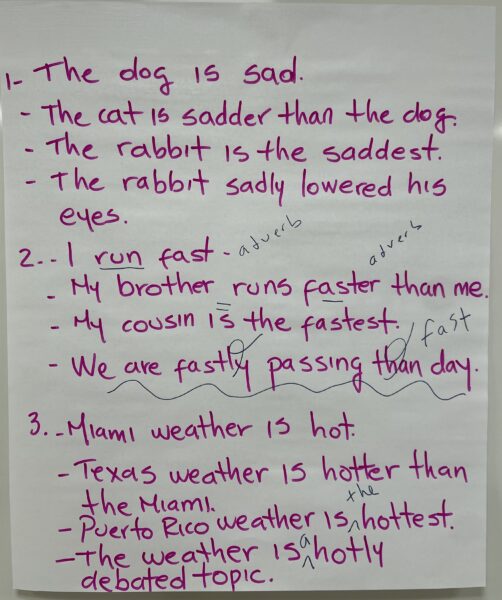 1- The dog is sad.
- The cat is sadder than the dog.
- The rabbit is the saddest.
- The rabbit sadly lowered his
eyes.
2.. I run fast - adverb
adverb
- My brother runs faster than me.
- My cousin is the fastest.
- We are fastly passing than day. fast
3. - Miami weather is hot.
- Texas weather is hotter than
the Miami.
the
- Puerto Rico weather is hottest.
a
- The weather is hotly
debated topic.